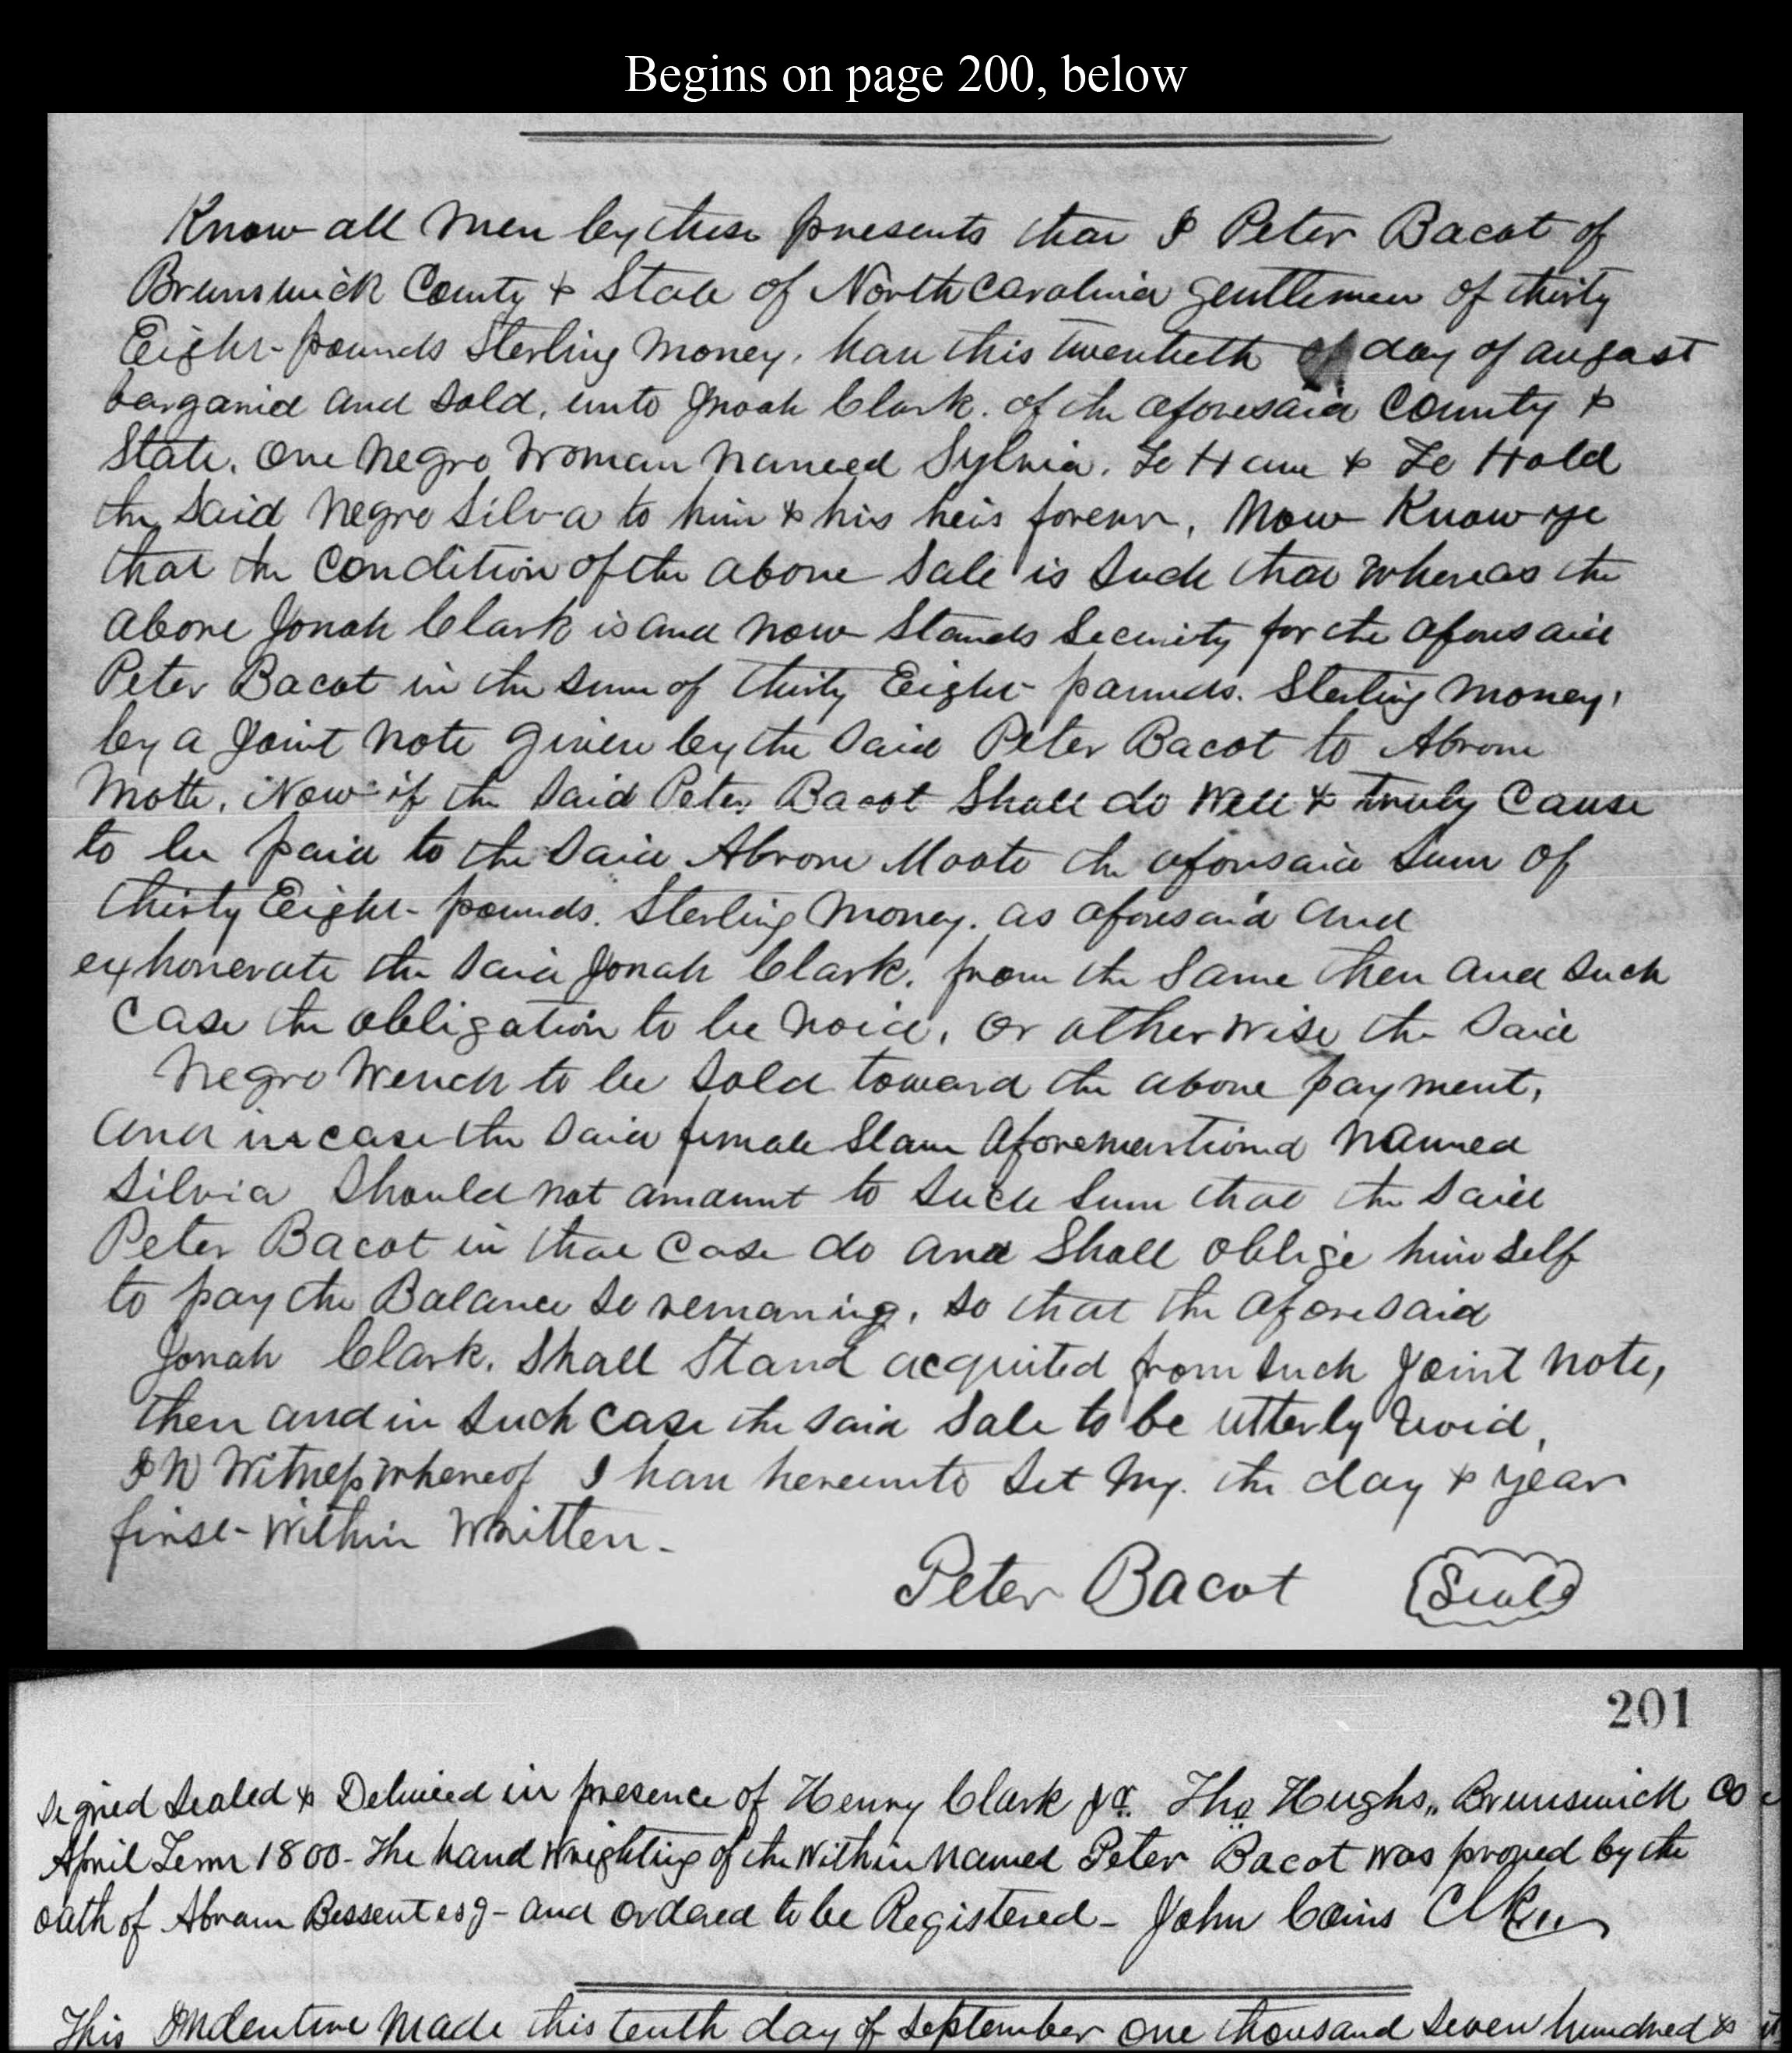 Begins on page 200, below
Know all men by these presents that I Peter Bacot of
Brunswick County & State of North Carolina gentlemen of thirty
Eight pounds Sterling Money, have this twentieth of day of august
barganid and sold, unto Jnoah Clark. of the aforesaid County &
State. One Negro Woman Named Sylvia. To Have & To Hold
the said Negro Silva to him & his heis forever, Now Know ye
that the Condition of the above Sale is Such that whereas the
above Jonah Clark is and now Stands Security for the aforesaid
Peter Bacot in the sum of thirty Eight pounds. Sterling Money,
by a Joint Note given by the Said Peter Bacot to Abrom
Motte. Now if the Said Peter Bacot Shall do Well & truly Cause
to be paid to the Said Abrom Moote the aforesaid Sum of
thirty Eight pounds. Sterling Money. as aforesaid and
exhonerate the Said Jonah Clark. from the Same then and Such
Case the obligation to be void, or other wise the Said
Negro Wench to be Sold toward the above payment,
and in case the Said female Slave aforementiond Named
Silvia Should not amount to Such Sum that the Said
Peter Bacot in that Case do and Shall oblige him self
to pay the Balance so remaning, so that the aforesaid
Jonah Clark. Shall Stand acquited from Such Joint Note,
then and in Such Case the said Sale to be utterly Void,
IN Witness whereof I have hereunto Set my. the day & year
first Within Written.
Peter Bacot Seal
201
Signed Sealed & Delivered in presence of Henry Clark Jr. Tho Hughs,, Brunswick Co
April Term 1800- The hand Wrighting of the Within Named Peter Bacot was proved by the
oath of Abram Bessent esq- and ordered to be Registered- John Cains Clk
This Indenture Made this tenth day of September One thousand Seven hundred &